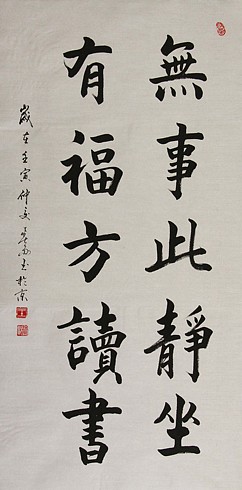 無事此靜坐
有福方讀書
歲在壬寅仲
於京